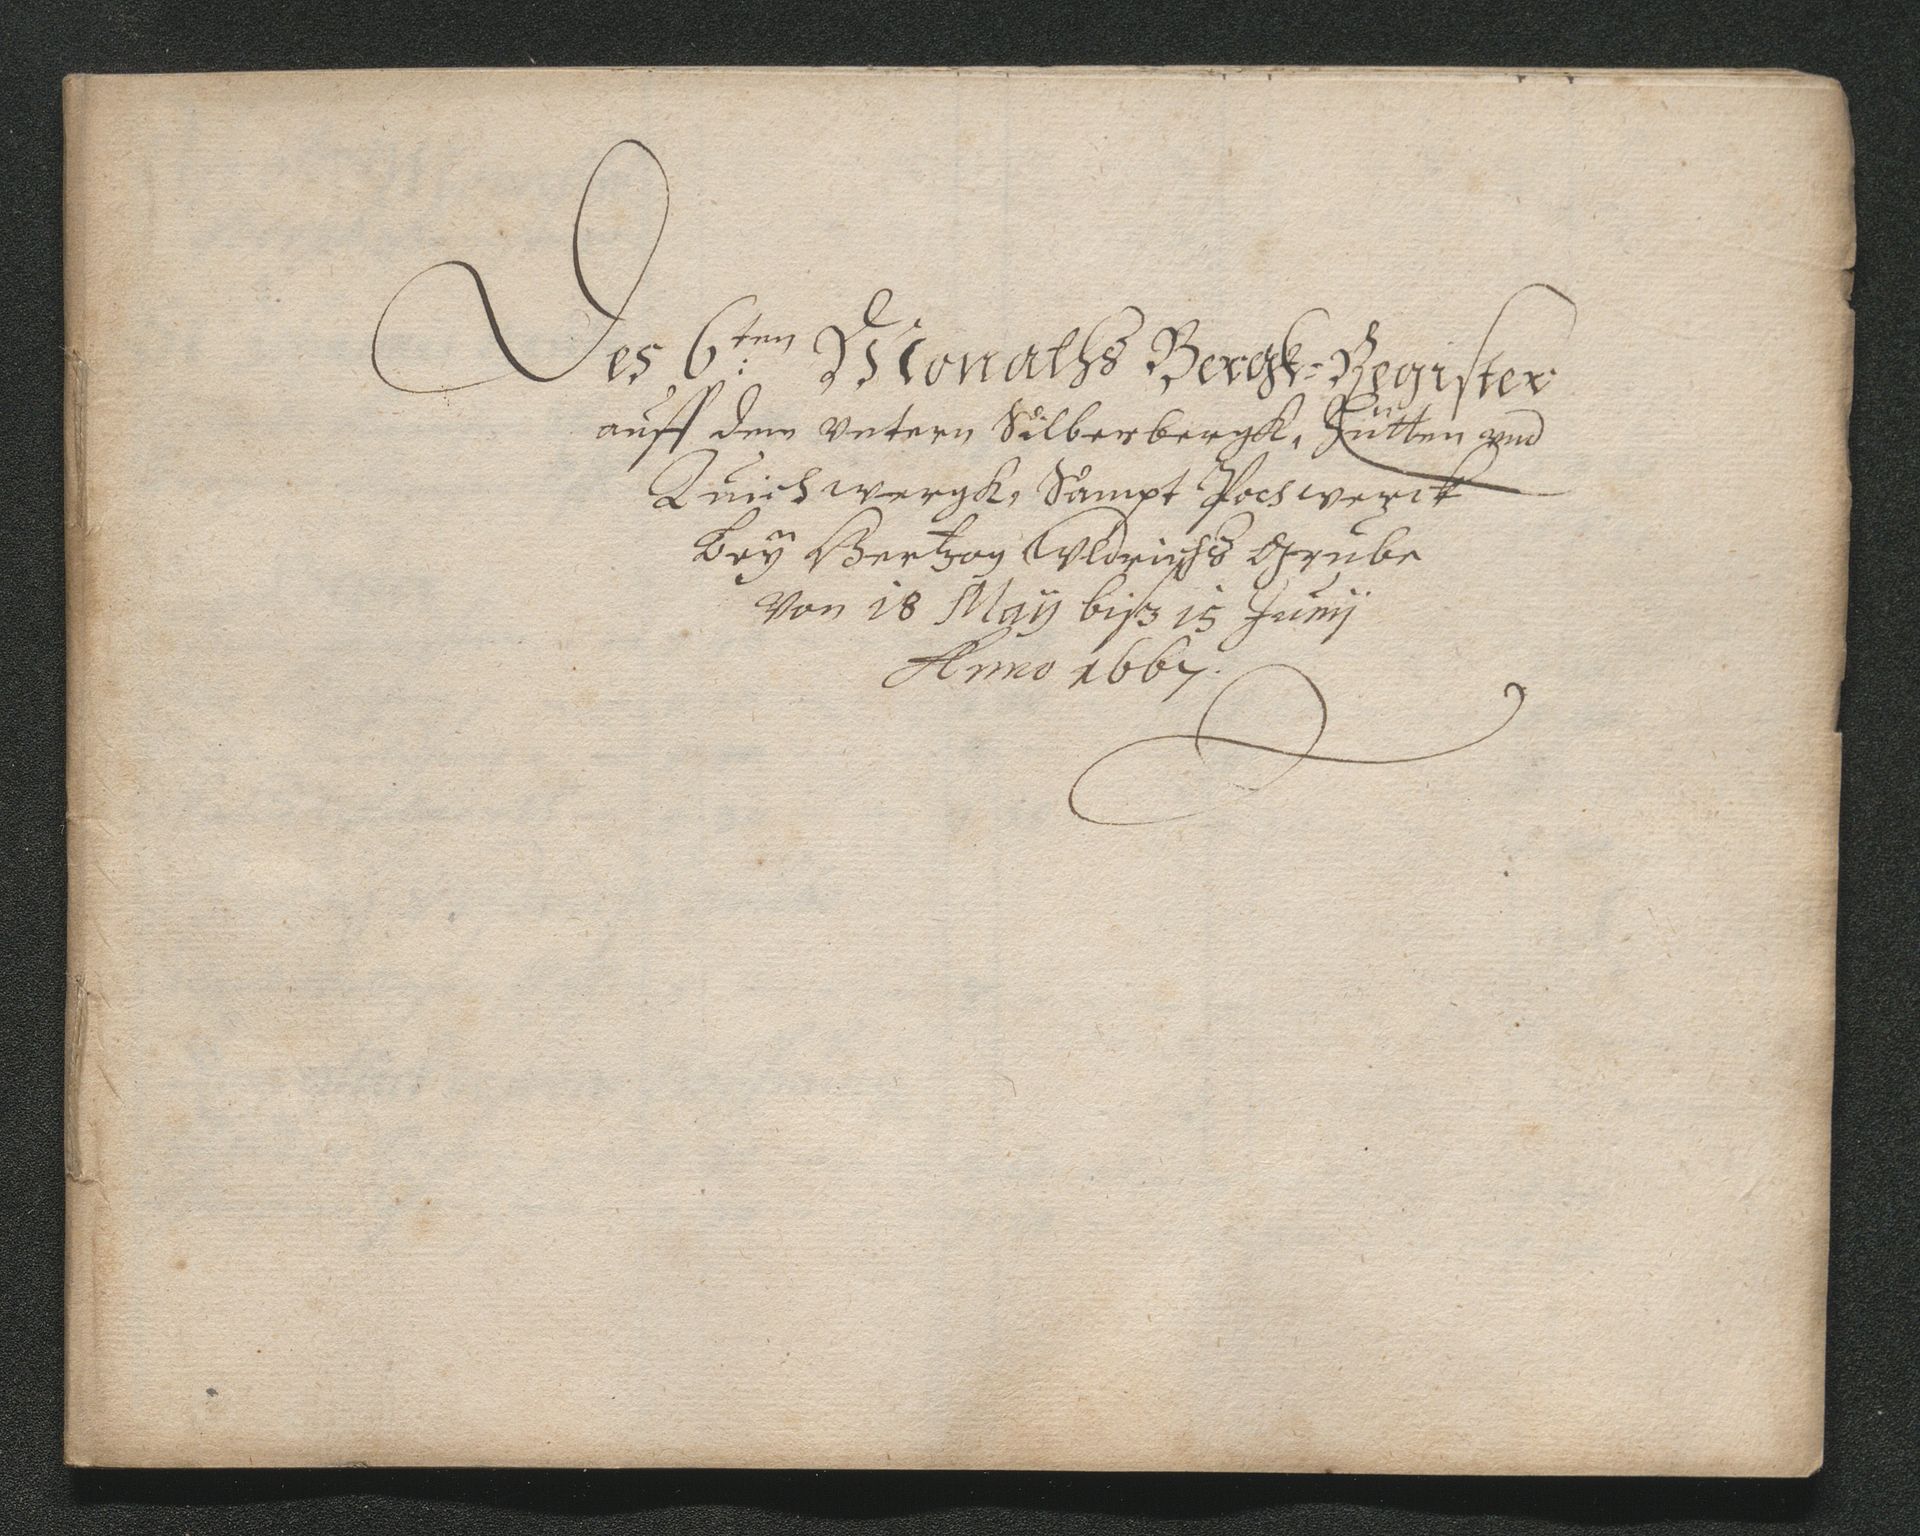 Des 6ten: Monaths Bergk-Register
auff dem vntern Silberbergk, Hütten vnd
Quichwergk, Sampt Pochwerck
bey Hertzog Vldrichs Grube
Von 18 Maÿ biß 15 Junij
Anno 1667.